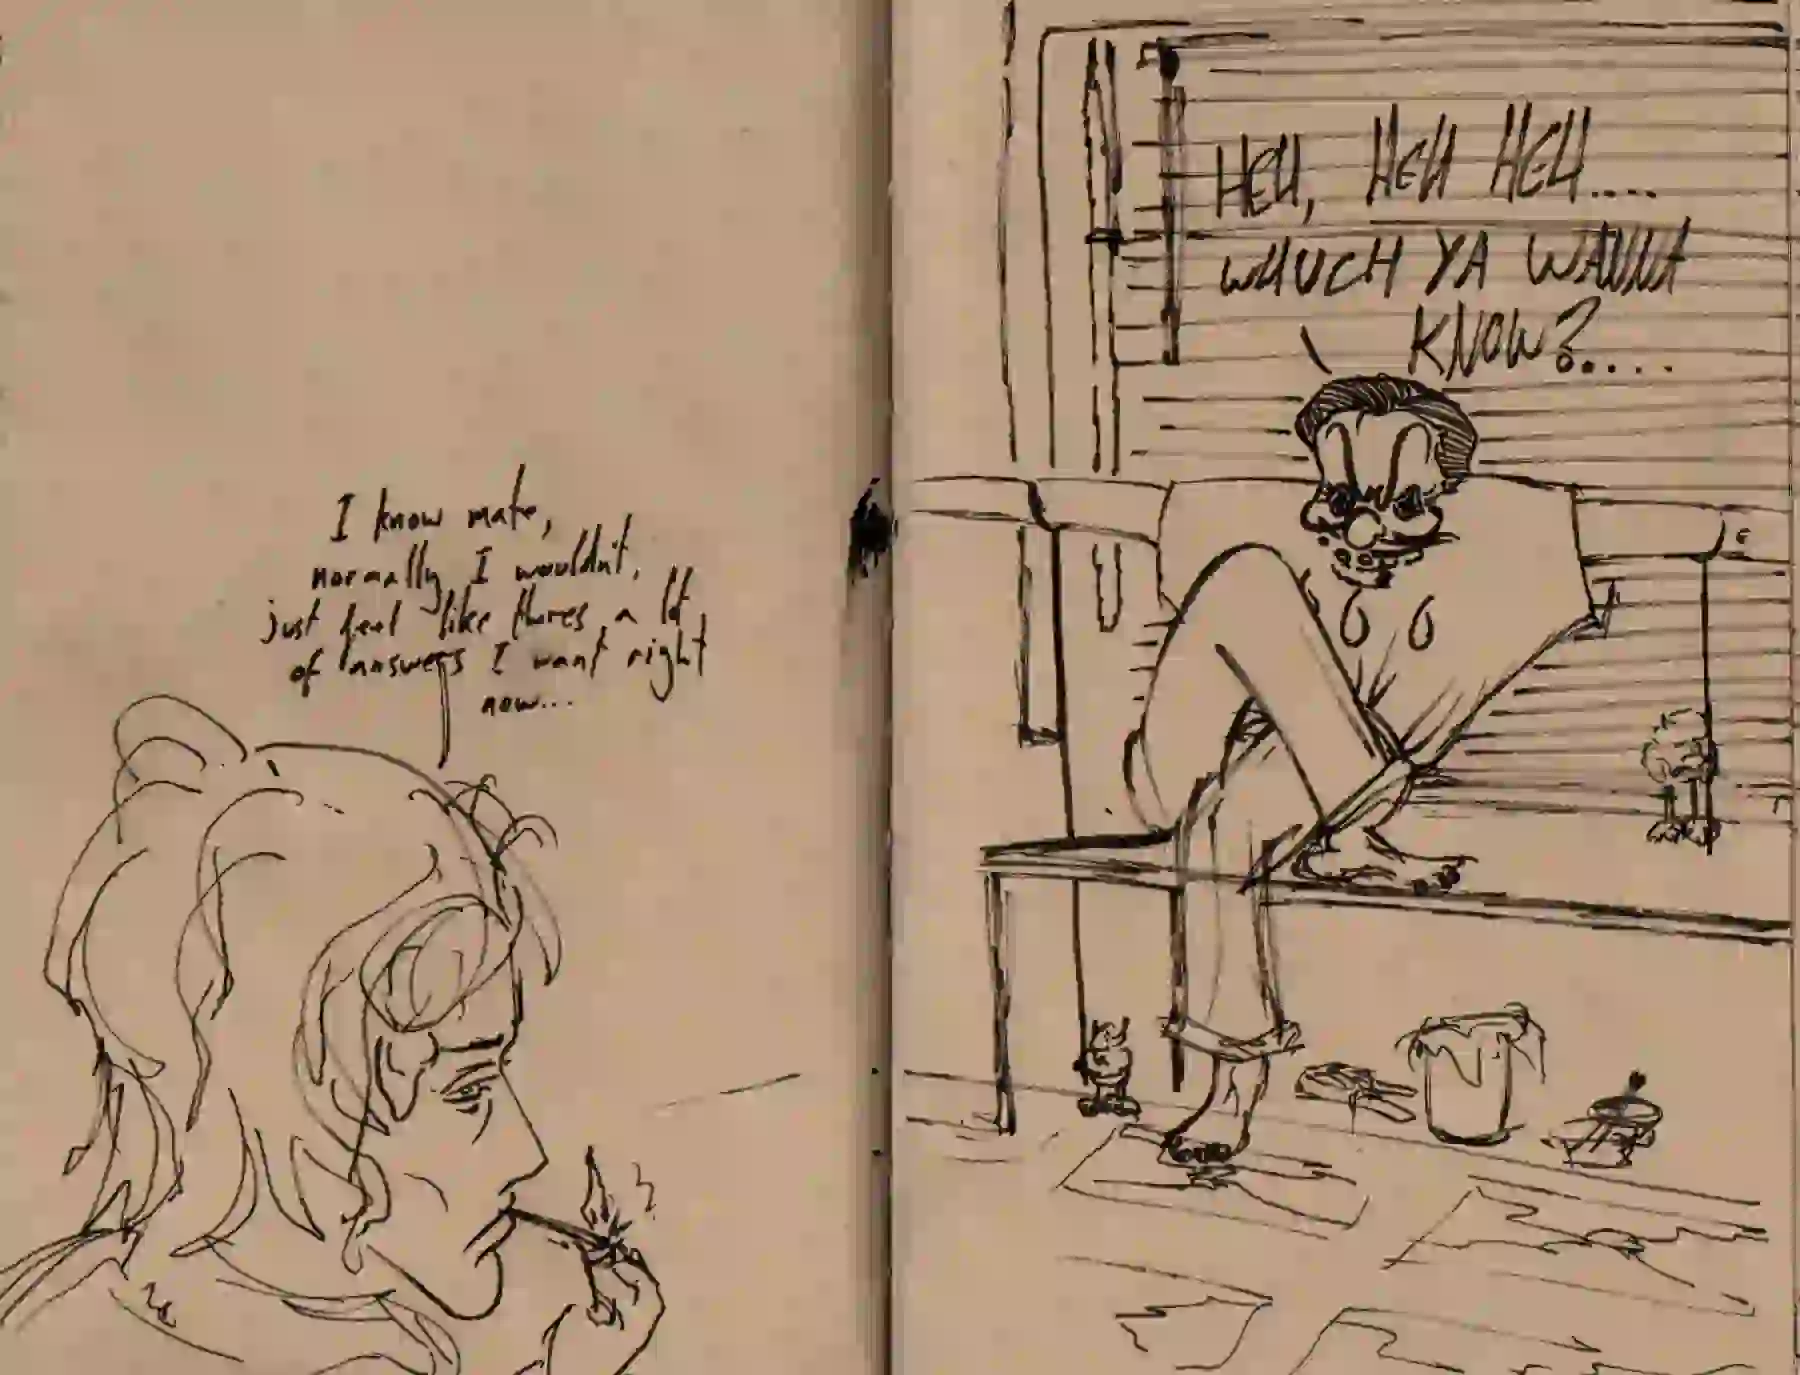 I know mate,
normally I wouldn't,
just feel like thures a lot
of answers I want right
now...
HEH, HEH HEH....
WHUCH YA WANNA
KNOW?....